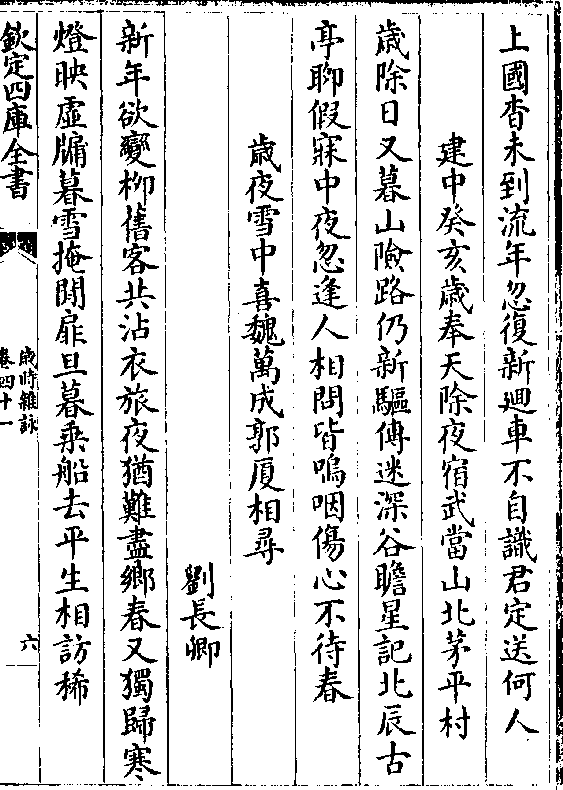 上國杳未到流年忽復新迴車不自識君定送何人
建中癸亥歲奉天除夜宿武當山北茅平村
歲除日又暮山險路仍新驅傳迷深谷瞻星記北辰古
亭聊假寐中夜忽逢人相問皆嗚咽傷心不待春
歲夜雪中喜魏萬成郭厦相尋
劉長卿
新年欲變柳舊客共沾衣旅夜猶難盡鄉春又獨歸寒
燈映虛牖暮雪掩閒扉旦暮乘船去平生相訪稀
欽定四庫全書
歲時雜詠
卷四十一
六